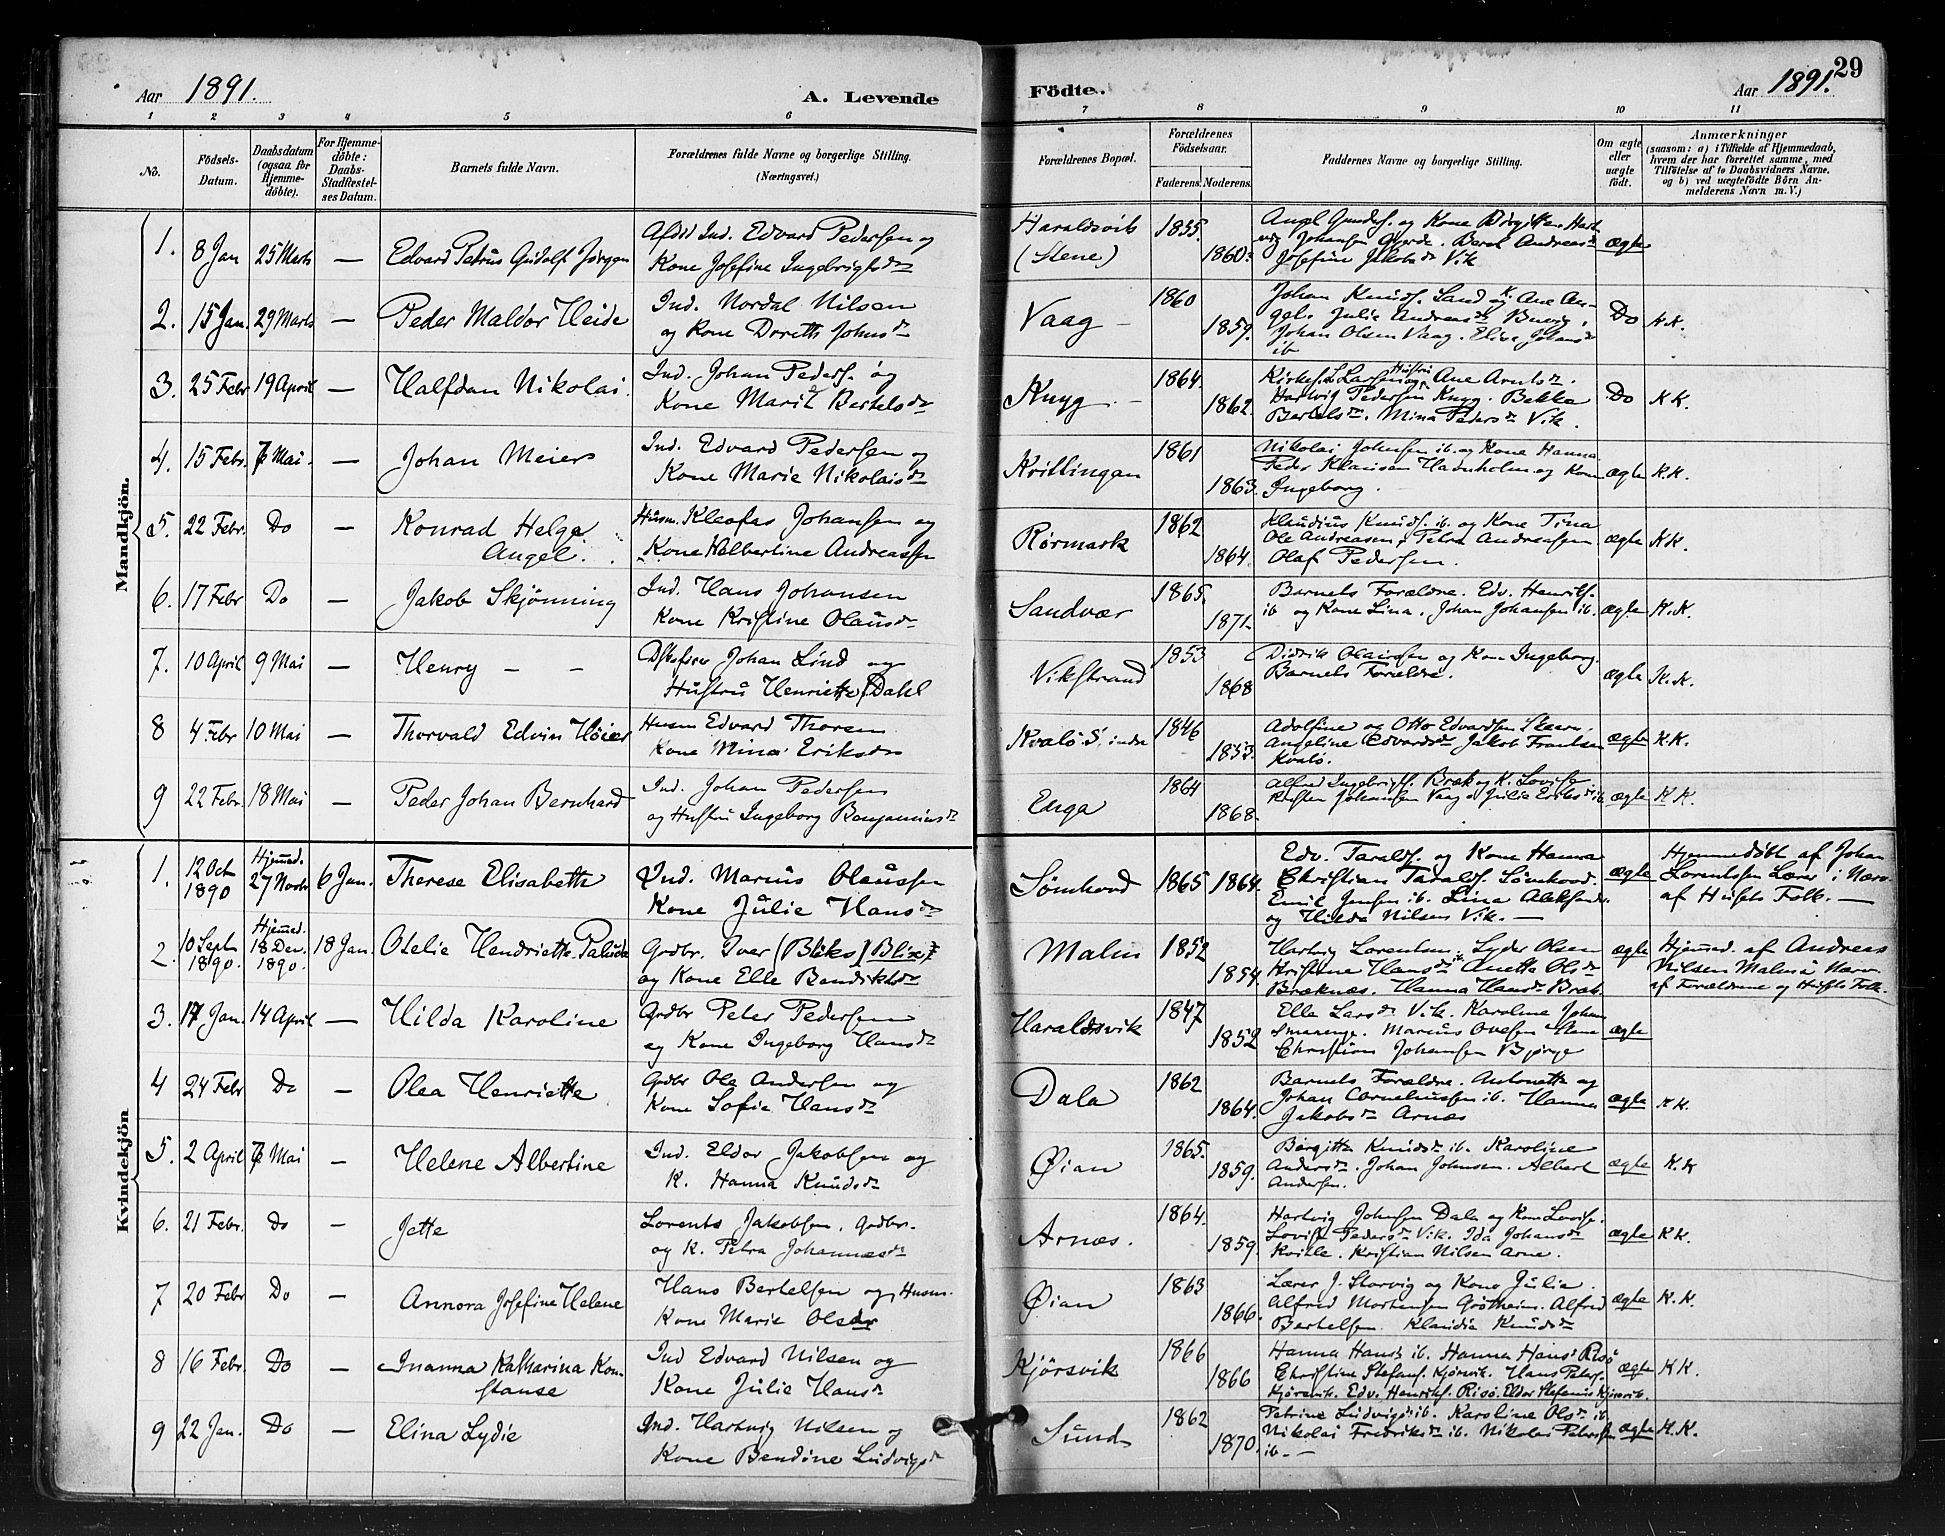 Aar 1891. A. Levende
Födte. Aar 1891. 29
1 2 3 4 5 6 7 8 9 10 11
No.
Födsels-
Datum.
Daabsdatum
(ogsaa for
Hjemme-
döbte).
For Hjemme-
döbte:
Daabs-
Stadfæstel-
ses Datum.
Barnets fulde Navn.
Forældrenes fulde Navne og borgerlige Stilling.
(Næringsvei.)
Forældrenes Bopæl.
Forældrenes
Födselsaar.
Faderens. Moderens.
Faddernes Navne og borgerlige Stilling.
Om ægte
eller
uægte
födt.
Anmærkninger
(saasom: a) i Tilfælde af Hjemmedaab,
hvem der har forrettet samme, med
Tilföielse af to Daabsvidners Navne,
og b) ved uægtefödte Börn An-
melderens Navn m. V.)
Mandkjön.
1. 8 Jan 25 Marts — Edvard Petrus Gudolf Jørgen
Ind. Edvard Pedersen og
Kone Josefine Ingebrigtsdr
Haraldsvik
(Stene)
1835. 1860.
og Kone Birgitte
Johansen Beret Andreasdr
Josefine Jakobsdr Vik
ægte
2. 15 Jan. 29 Marts — Peder Maldor Heide
Ind. Nordal Nilsen
og Kone Doreth Johnsdr
Vaag —
1860 1859.
Johan Knuds. Sand og K. Ane An-
gels. Julie Andreasdr Buvig.
Johan Olsen Vaag. Elise Johansdr
ib
Do K.K.
3. 25 Febr 19 April — Halfdan Nikolai.
Ind. Johan Peders. og
Kone Marit Bertelsdr
Knyg. —
1864. 1862.
Kirkes. L. Larsen og Hustru Ane Arntsdr.
Hartvig Pedersen Knyg. Bekka
Bertelsdr. Mina Pedersdr Vik.
Do K K.
4. 15 Febr. 7 Mai. — Johan Meier
Ind. Edvard Pedersen og
Kone Marie Nikolaisdr
Kvitlingan
1861 1863.
Nikolai Johnsen ib. og Kone Hanna
Peder Klausen Havnholm og Kone
Ingeborg.
ægte K.K.
5. 22 Febr. Do — Konrad Helge
Angel.
Husm. Kleofas Johansen og
Kone Albertine Andreassen
Rørmark
1862 1864.
Klaudius Knuds. ib. og Kone Tina
Ole Andreasen, Petra Andreassen
Olaf Pedersen.
ægte K.K.
6. 17 Febr Do — Jakob Skjønning
Ind. Hans Johansen
Kone Kristine Olausdr
Sandvær
1865. 1871.
Barnets Forældre. Edv. Henriks.
ib og Kone Lina. Johan Johansen ib.
ægte K.K.
7. 10 April 9 Mai — Henry — —
Johan Lind og
Hustru Henriette Dahl
Vikstrand
1853 1868
Didrik Olaussen og Kone Ingeborg.
Barnets Forældre.
ægte K.K.
8 4 Febr 10 Mai — Thorvald Edvin Høier
Husm Edvard Thorsen
Kone Mina Eriksdr
Kvalö S. indre
1846 1853.
Adolfine og Otto Edvardsen Skarv.
Angeline Edvardsdr Jakob Frantsen
Kvalö.
ægte K.K.
9 22 Febr. 18 Mai — Peder Johan Bernhard
Ind. Johan Pedersen
og Hustru Ingeborg Benjaminsdr
Enga
1864 1868.
Alfred Ingebrigts. Bræk og K. Lovise
Johansen Vaag Julie Eriksdr ib.
ægte K K.
Kvindekjön
1. 12 Oct
1890
Hjemmed.
27 Novbr
6 Jan. Therese Elisabeth
Ind. Marius Olaussen
Kone Julie Hansdr
Sømhovd
1865 1864.
Edv. Taralds. og Kone Hanna
Christian Taralds. Sømhovd.
Emil Jensen ib. Lina Aleksandr.
og Hilda Nilsen Vik. —
ægte
Hjemmedöbt af Johan
Lorentsen Lærer i Nærv.
af Husets Folk. —
2. 10 Septr
1890.
Hjemmed.
18 Dec.
1890.
18 Jan. Otelie Hendriette Paluda
Grdbr. Iver (Bliks) Blix
og Kone Elle Bendiktsdr
Malm
1852 1854.
Hartvig Lorentsen. Lyder Olsen
Kristine Hansdr ib. Anette Olsdr
Bræknæs. Hanna Hansdr Bræk.
ægte
Hjemmed. af Andreas
Nilsen Malm i Nærv.
af Forældrene og Husets Folk.
3. 17 Jan. 14 April — Hilda Karoline
Grdbr Peter Pedersen
og Kone Ingeborg Hansdr
Haraldsvik
1847 1852
Ella Larsdr Vik. Karoline Johan
Smaaenge. Marcus Ovesen
Christian Johansen Bjørge
ægte
4 24 Febr Do — Olea Henriette
Grdbr Ole Andersen og
Kone Sofie Hansdr
Dala
1862 1864.
Barnets Forældre. Antonette og
Johan Corneliussen ib. Hanna
Jakobsdr Arnæs
ægte K K.
5. 2 April 7 Mai — Helene Albertine
Ind. Eldor Jakobsen og
K. Hanna Knudsdr
Øian
1865. 1859.
Birgitte Knudsdr ib. Karoline
Andersdr. Johan Johnsen. Albert
Andersen.
ægte K.K
6. 21 Febr. Do — Jette
Lorents Jakobsen, Grdbr.
og K. Petra Johannesdr
Arnæs.
1864. 1859.
Hartvig Johnsen Dala og Kone Lovise.
Lovise Pedersdr Vik. Ida Johansdr
Kvitle. Kristian Nilsen Arne.
ægte K K.
7 20 Febr Do — Annora Josefine Helene
Hans Bertelsen og, Husm.
Kone Marie Olsdr
Øian
1863 1866.
Lærer J. Storvig og Kone Julie.
Alfred Mortensen Grøtheim. Alfred
Bertelsen. Klaudia Knudsdr
ægte K.K.
8 16 Febr. Do — Inanna Katharina Kon-
stanse
Ind Edvard Nilsen og
Kone Julie Hansdr
Kjørsvik
1866 1866
Hanna Hansdr ib. Hanna Hans Risö
Christine Stefans. Kjørsvik. Hans Peters.
Kjørsvik. Edv. Henriks. Risö. Eldor Stefanus Kjørsvik.
ægte K K.
9 22 Jan. Do — Elina Lydie
Ind. Hartvig Nilsen og
Kone Bendine Ludvigsdr
Sund
1862 1870.
Petrine Ludvigs ib. Karoline Olsdr ib.
Nikolai Fredriksdr ib. Nikolai Petersen
ib. —
ægte K.K.